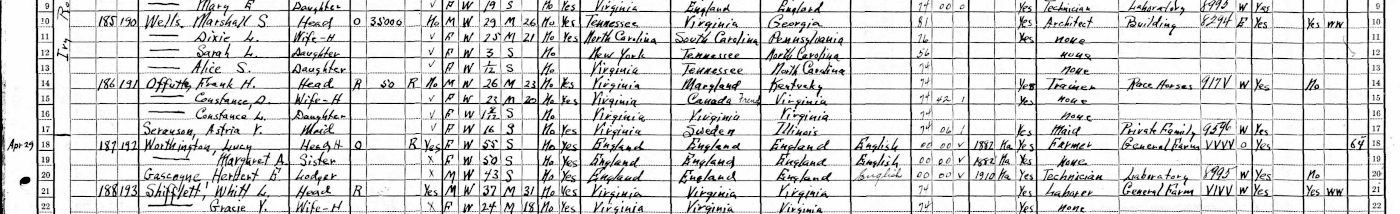 9 Mary E Daughter √ F W 19 S No Yes Virginia England England 74 00 0 Yes Technician Laboratory 8995 W Yes 9
10 185 190 Wells, Marshall S Head O 35000 No M W 29 M 26 No Yes Tennessee Virginia Georgia 81 Yes Architect Building 8294 E Yes Yes WW 10
11 — Dixie L. Wife-H √ F W 25 M 21 No Yes North Carolina South Carolina Pennsylvania 76 Yes none 11
12 — Sarah L. Daughter √ F W 3 S No New York Tennessee North Carolina 56 none 12
13 — Alice S. Daughter √ F W /12 S No Virginia Tennessee North Carolina 74 none 13
14 186 191 Offutt, Frank H. Head R 50 R No M W 26 M 23 No Yes Virginia Maryland Kentucky 74 Yes Trainer Race Horses 917V W Yes No 14
15 — Constance, D. Wife-H √ F W 23 M 20 No Yes Virginia Canada French Virginia 74 42 1 Yes none 15
16 — Constance L. Daughter √ F W /12 S No Virginia Virginia Virginia 74 none 16
17 Sorenson, Astria V. Maid √ F W 16 S No Yes Virginia Sweden Illinois 74 06 1 Yes Maid Private Family 9596 W Yes 17
Apr 29 18 187 192 Worthington, Lucy Head H O R Yes F W 55 S No Yes England England England English 00 00 V 1882 Na Yes Farmer General Farm VVVV O Yes 64 18
19 — Margaret A. Sister X F W 50 S No Yes England England England English 00 00 V 1882 Na Yes None 19
20 Gascoyne Herbert E Lodger X M W 43 S No Yes England England England English 00 00 V 1910 Na Yes Technician Laboratory 8995 W Yes No 20
21 188 193 Shifflett, Whitt L. Head R Yes M W 37 M 31 No Yes Virginia Virginia Virginia 74 Yes Laborer General Farm VIVV W Yes Yes WW 21
22 — Gracie V. Wife-H X F W 24 M 18 No Yes Virginia Virginia Virginia 74 Yes none 22